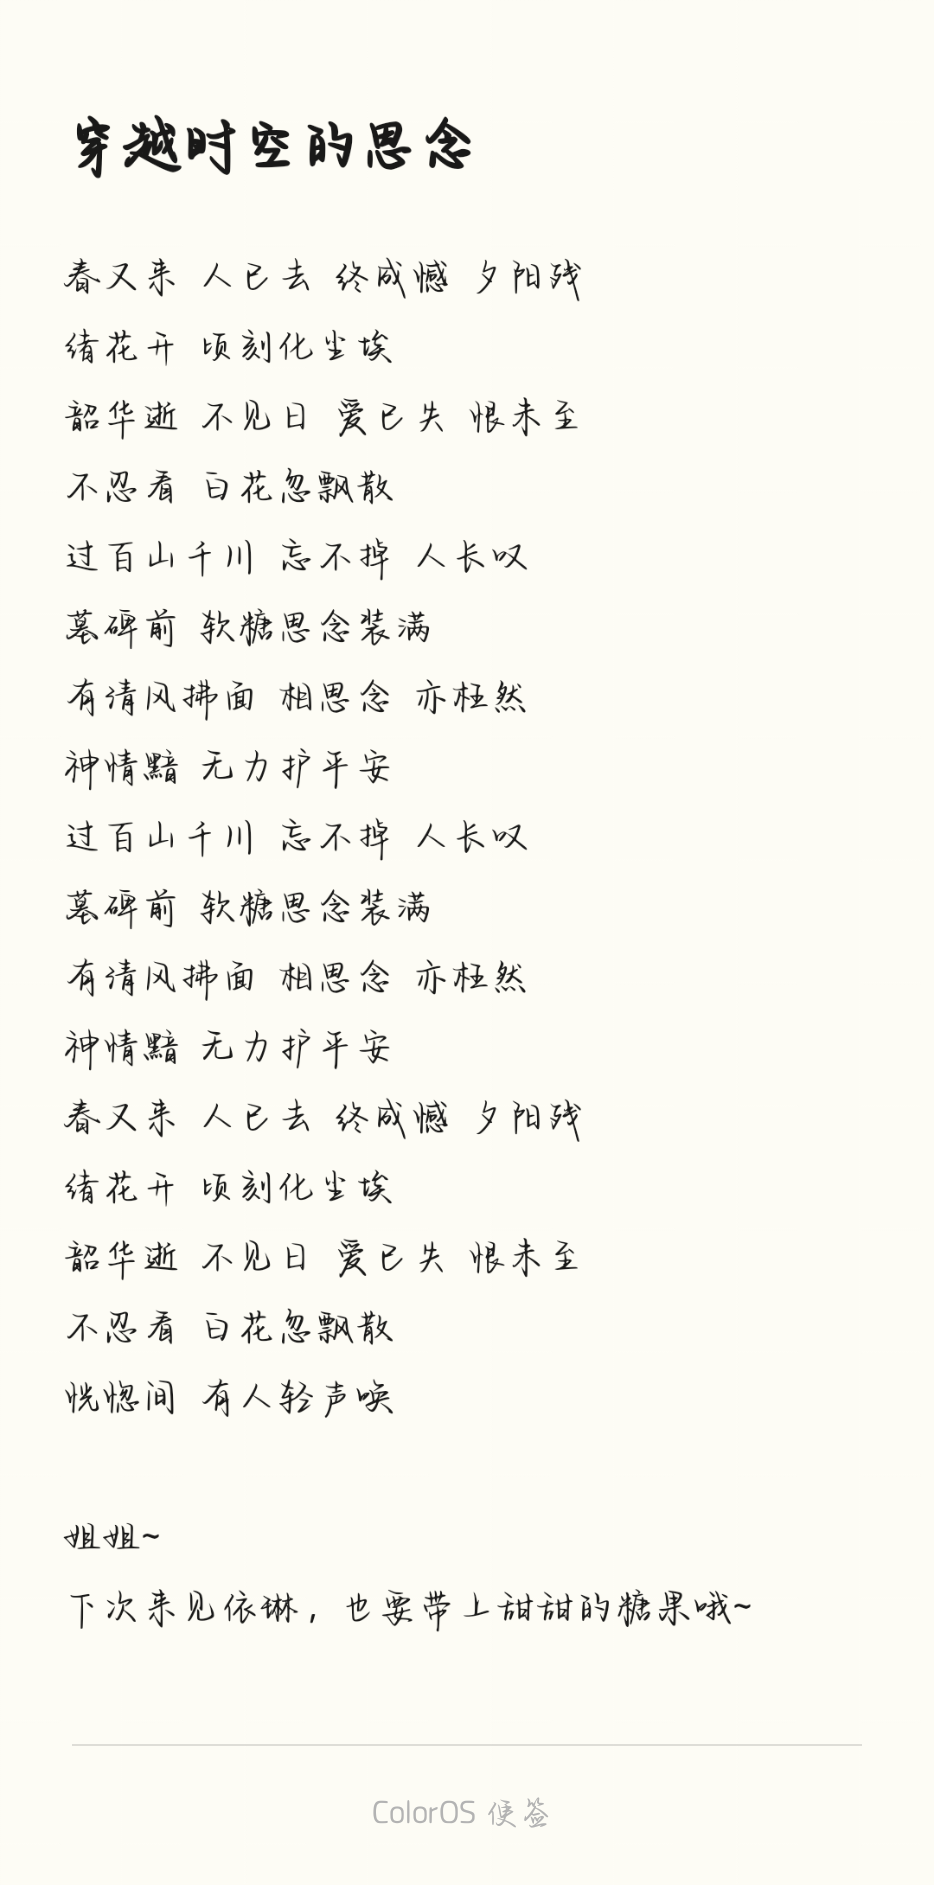 穿越时空的思念
春又来 人已去 终成憾 夕阳残
绪花开 顷刻化尘埃
韶华逝 不见日 爱已失 恨未至
不忍看 白花忽飘散
过百山千川 忘不掉 人长叹
墓碑前 软糖思念装满
有清风拂面 相思念 亦枉然
神情黯 无力护平安
过百山千川 忘不掉 人长叹
墓碑前 软糖思念装满
有清风拂面 相思念 亦枉然
神情黯 无力护平安
春又来 人已去 终成憾 夕阳残
绪花开 顷刻化尘埃
韶华逝 不见日 爱已失 恨未至
不忍看 白花忽飘散
恍惚间 有人轻声唤
姐姐~
下次来见依琳，也要带上甜甜的糖果哦~
ColorOS 便签